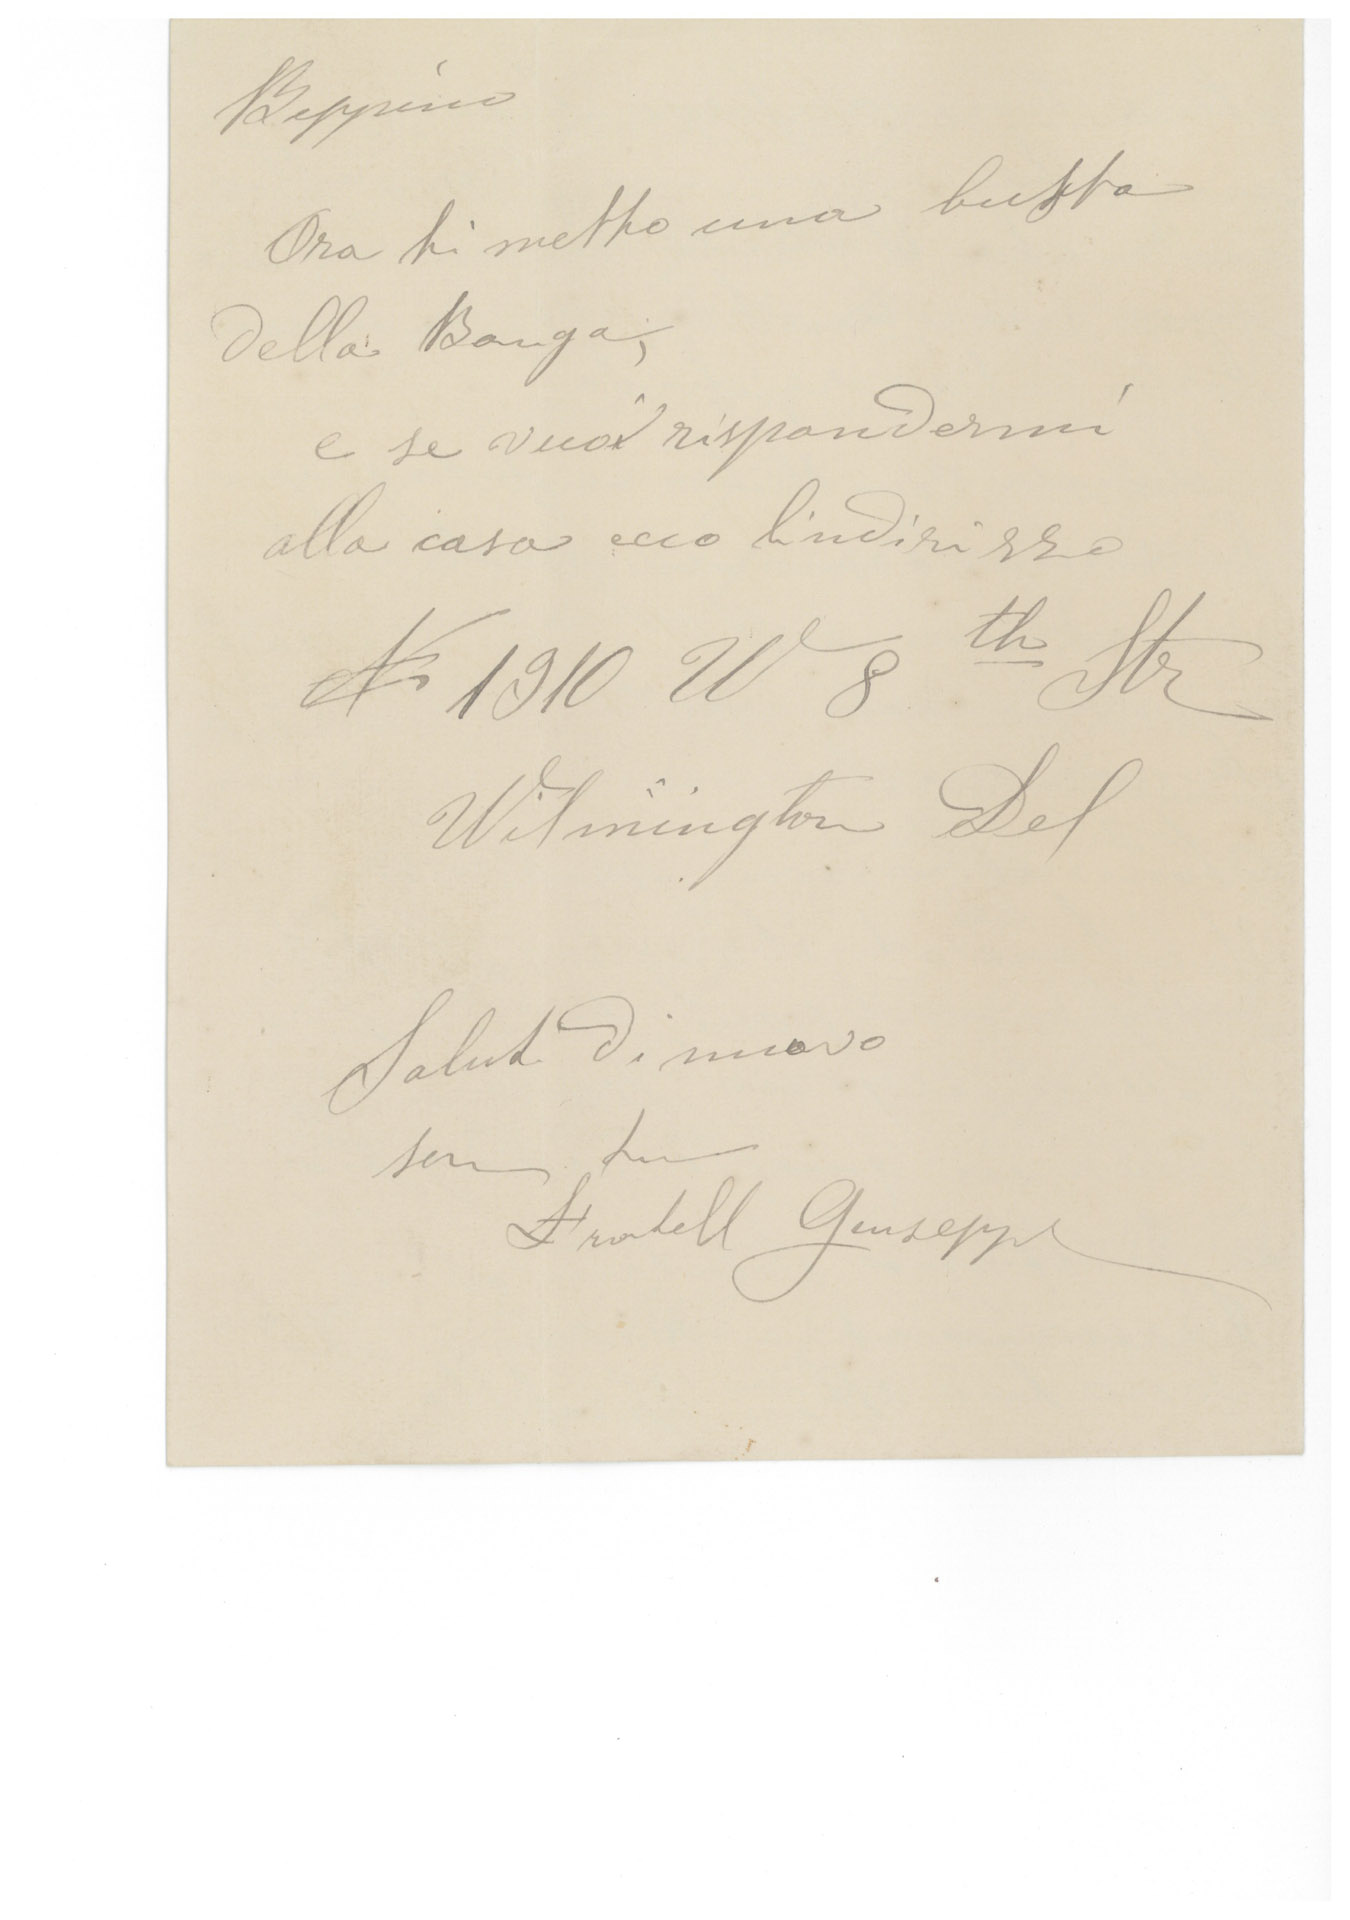 Beppino
Ora ti metto una busta
della Banga,
e se vuoi rispondermi
alla casa ecco lindirizzo
No 1910 W 8th Str
Wilmington Del
Salut di nuovo
son tu
Fratell Giuseppe